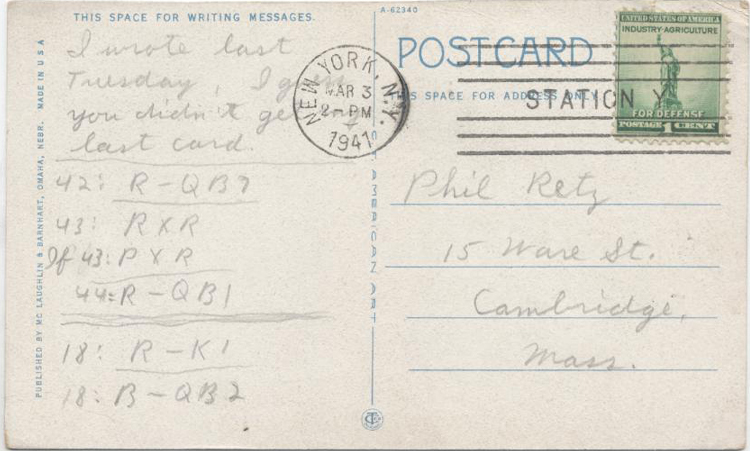 THIS SPACE FOR WRITING MESSAGES.
I wrote last
Tuesday, I guess
you didn't get my
last card.
42: R-QB7
43: R X R
If 43: P X R
44: R-QB1
18: R-K1
18: B-QB2
PUBLISHED BY MC LAUGHLIN & BARNHART, OMAHA, NEBR. MADE IN U S A
AMERICAN ART
A-62340
POSTCARD
THIS SPACE FOR ADDRESS ONLY
NEW YORK, N.Y.
MAR 3
2-PM
1941
STATION Y
UNITED STATES OF AMERICA
INDUSTRY·AGRICULTURE
FOR DEFENSE
POSTAGE 1 CENT
Phil Retz
15 Ware St.
Cambridge,
Mass.